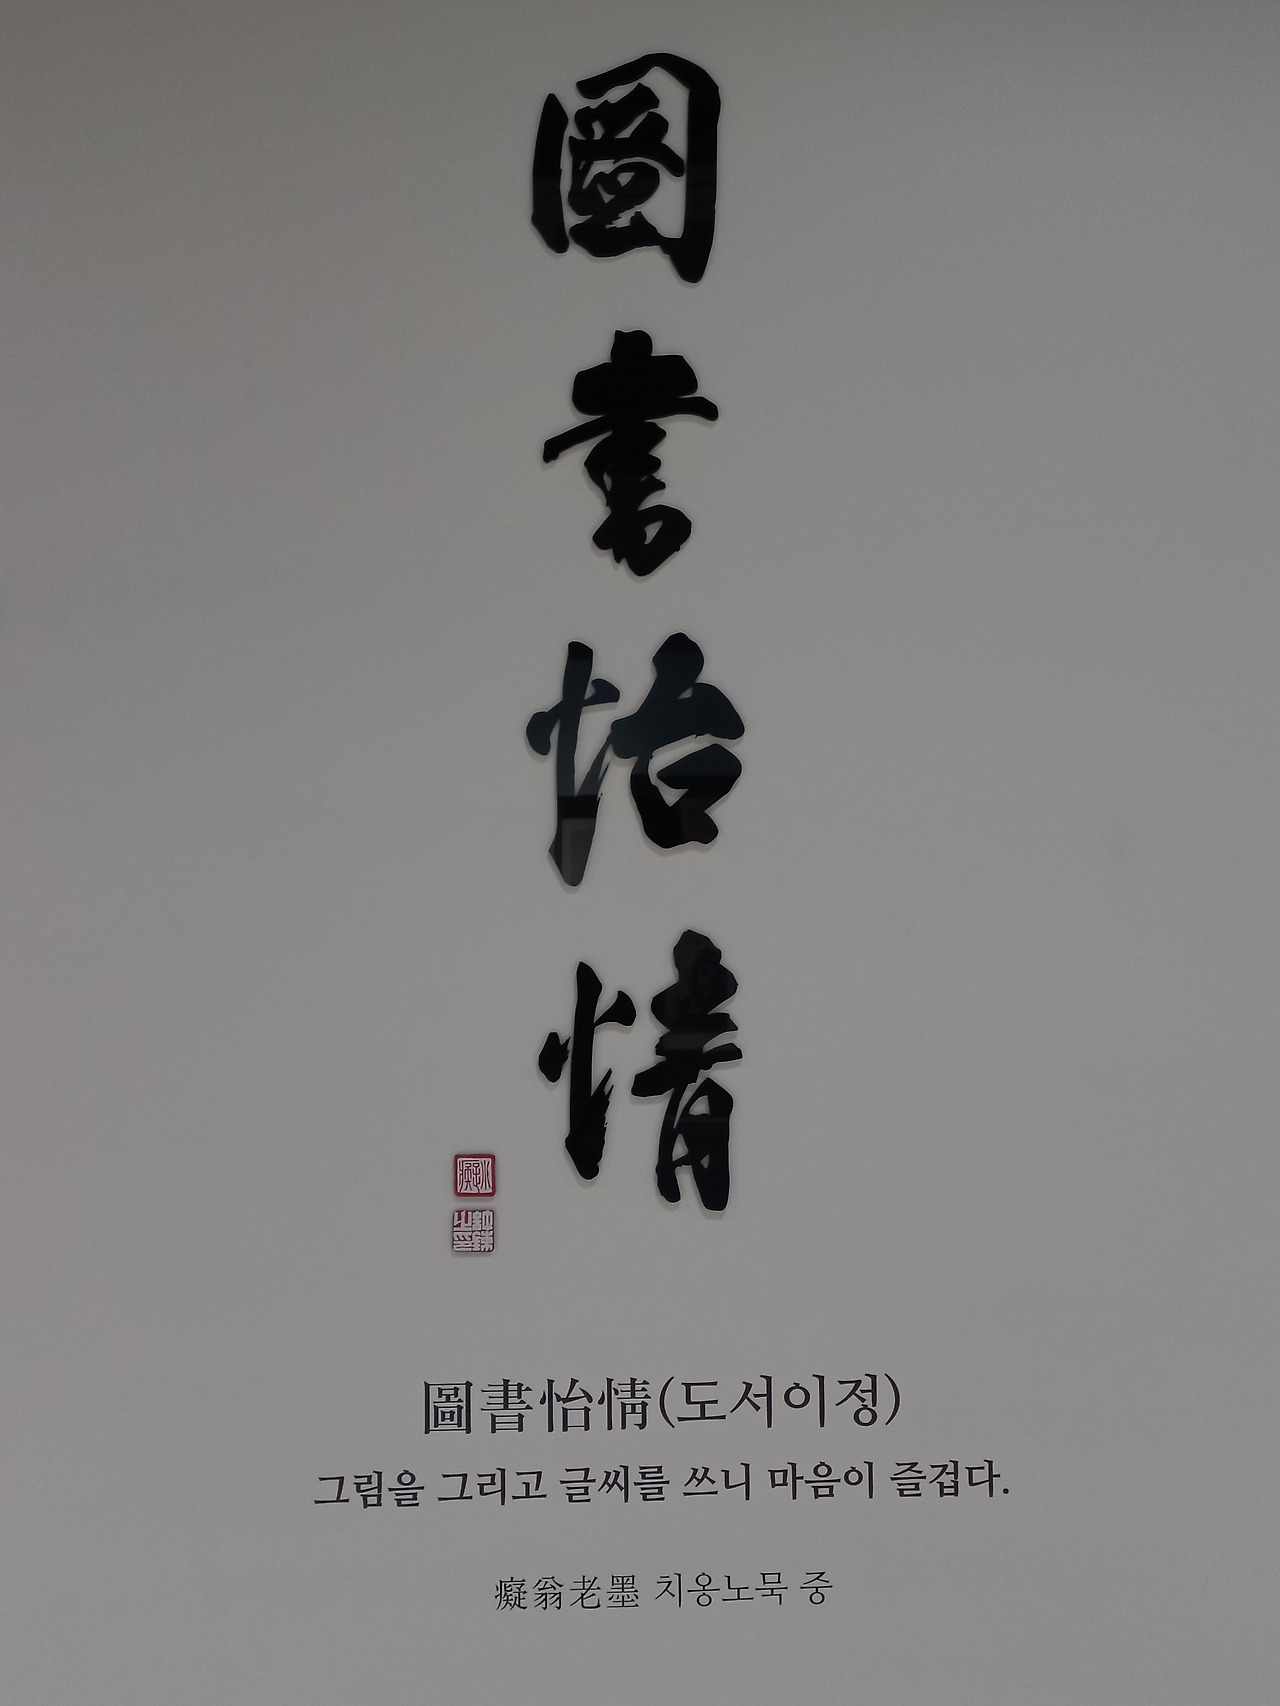 圖
書
怡
情
圖書怡情(도서이정)
그림을 그리고 글씨를 쓰니 마음이 즐겁다.
癡翁老墨 치옹노묵 중